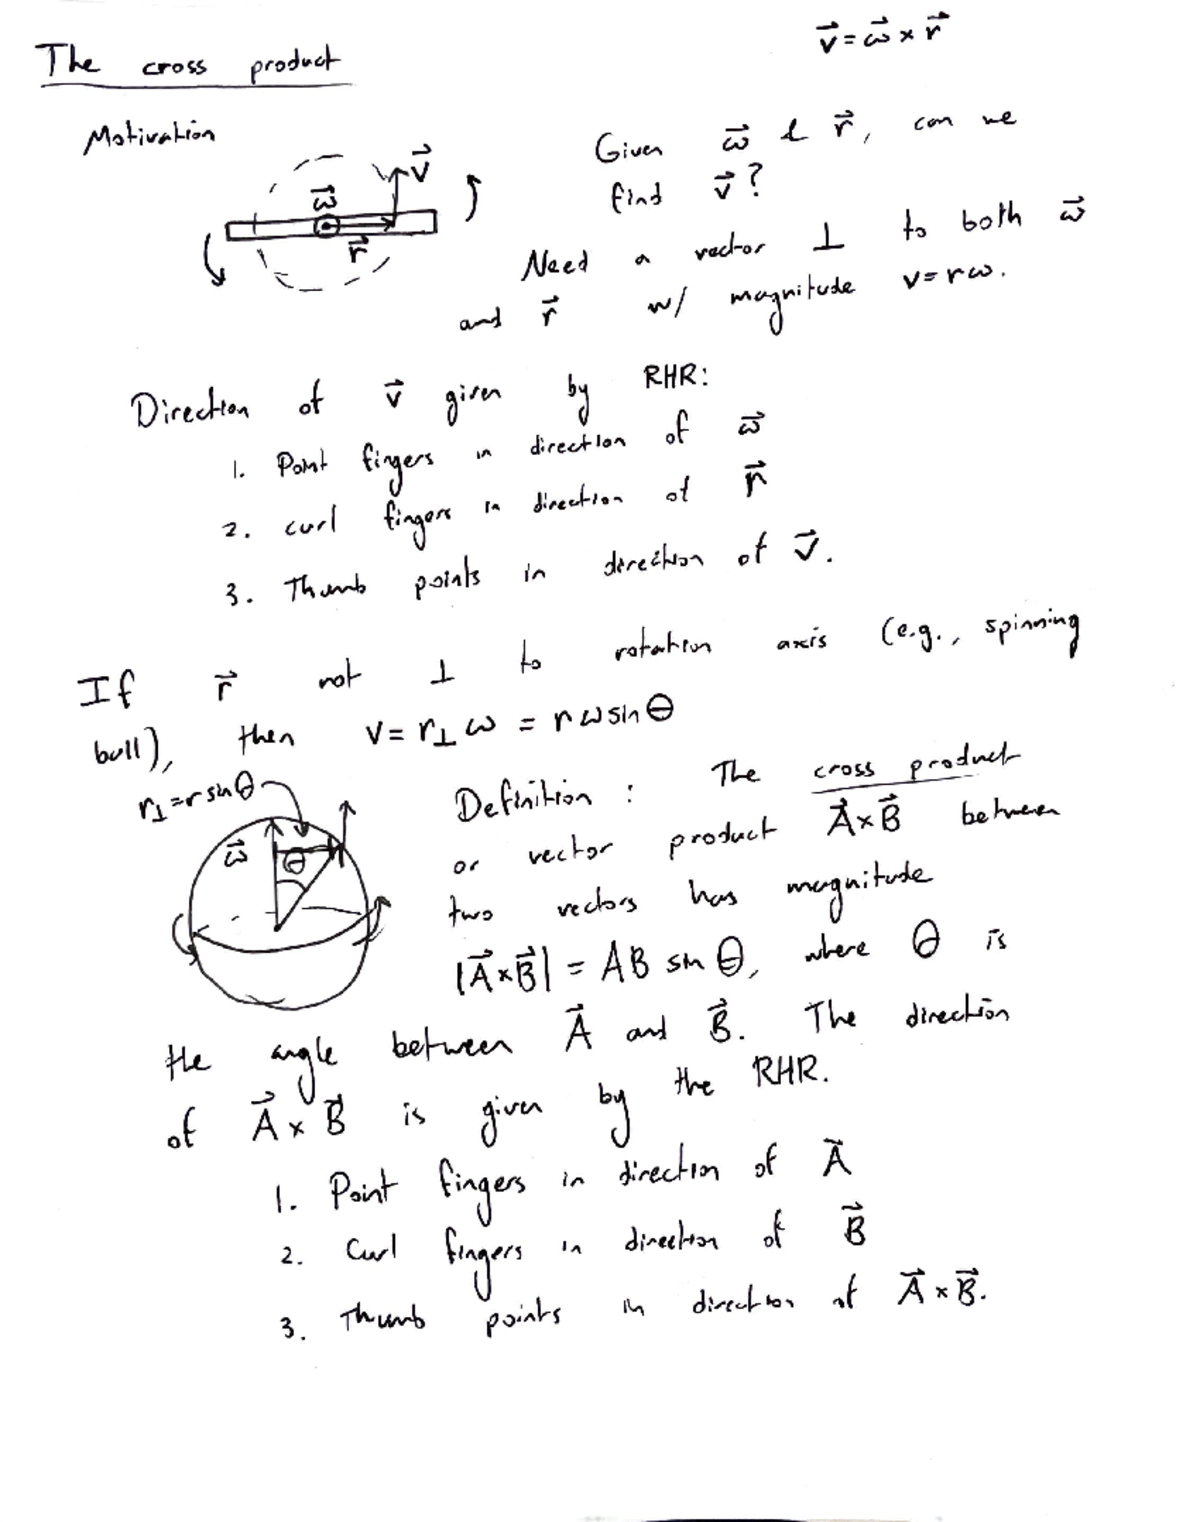 The cross product
v⃗ = ω⃗ × r⃗
Motivation
v⃗
ω⃗
r⃗
Given ω⃗ & r⃗, can we
find v⃗?
Need a vector ⊥ to both ω⃗
and r⃗ w/ magnitude v = rω.
Direction of v⃗ given by RHR:
1. Point fingers in direction of ω⃗
2. curl fingers in direction of r⃗
3. Thumb points in direction of v⃗.
If r⃗ not ⊥ to rotation axis (e.g., spinning
ball), then v = r⊥ ω = rω sin θ
r⊥ = r sin θ
ω⃗
θ
Definition: The cross product
or vector product A⃗ × B⃗ between
two vectors has magnitude
|A⃗ × B⃗| = AB sin θ, where θ is
the angle between A⃗ and B⃗. The direction
of A⃗ × B⃗ is given by the RHR.
1. Point fingers in direction of A⃗
2. Curl fingers in direction of B⃗
3. Thumb points in direction of A⃗ × B⃗.